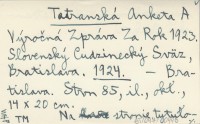 Tatranská Anketa A
Výročná Zpráva Za Rok 1923.
Slovenský Cudzinecký Sväz,
Bratislava. 1924. - Bra-
tislava. Stron 85, il., okł.,
14 x 20 cm.
Na stronie tytuło-
TM